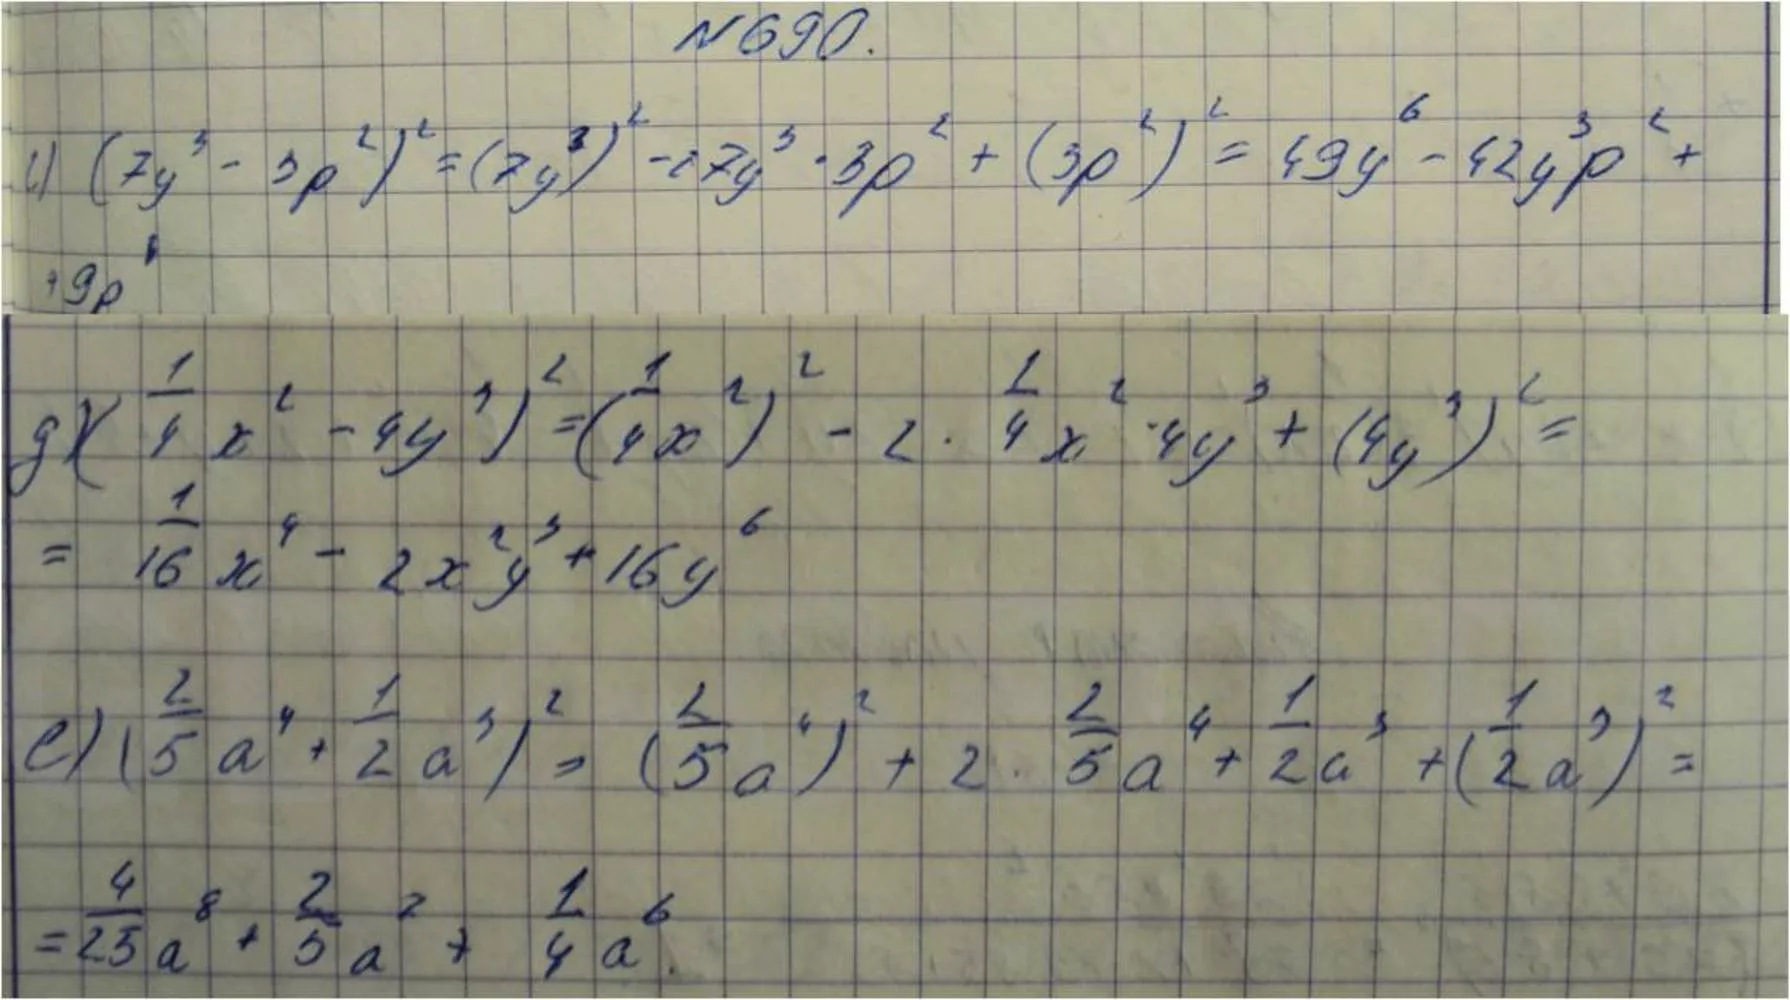 N690.
г) (7y³ - 3p²)² = (7y³)² - 2·7y³ · 3p² + (3p²)² = 49y⁶ - 42y³p² +
+9p⁴
д) (1/4 x² - 4y³)² = (1/4 x²)² - 2 · 1/4 x² · 4y³ + (4y³)² =
= 1/16 x⁴ - 2x²y³ + 16y⁶
е) (2/5 a⁴ + 1/2 a³)² = (2/5 a⁴)² + 2 · 2/5 a⁴ + 1/2 a³ + (1/2 a³)² =
= 4/25 a⁸ + 2/5 a⁷ + 1/4 a⁶.